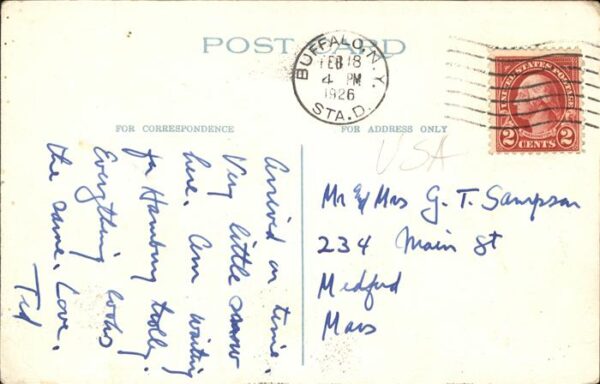 POST CARD
BUFFALO, N.Y.
FEB 18
4 PM
1926
STA. D.
UNITED STATES POSTAGE
2 CENTS 2
FOR CORRESPONDENCE
FOR ADDRESS ONLY
USA
Arrived on time.
Very little snow
here. Am waiting
for Hamburg trolley.
Everything looks
the same. Love,
Ted
Mr & Mrs G. T. Sampson
234 Main St
Medford
Mass